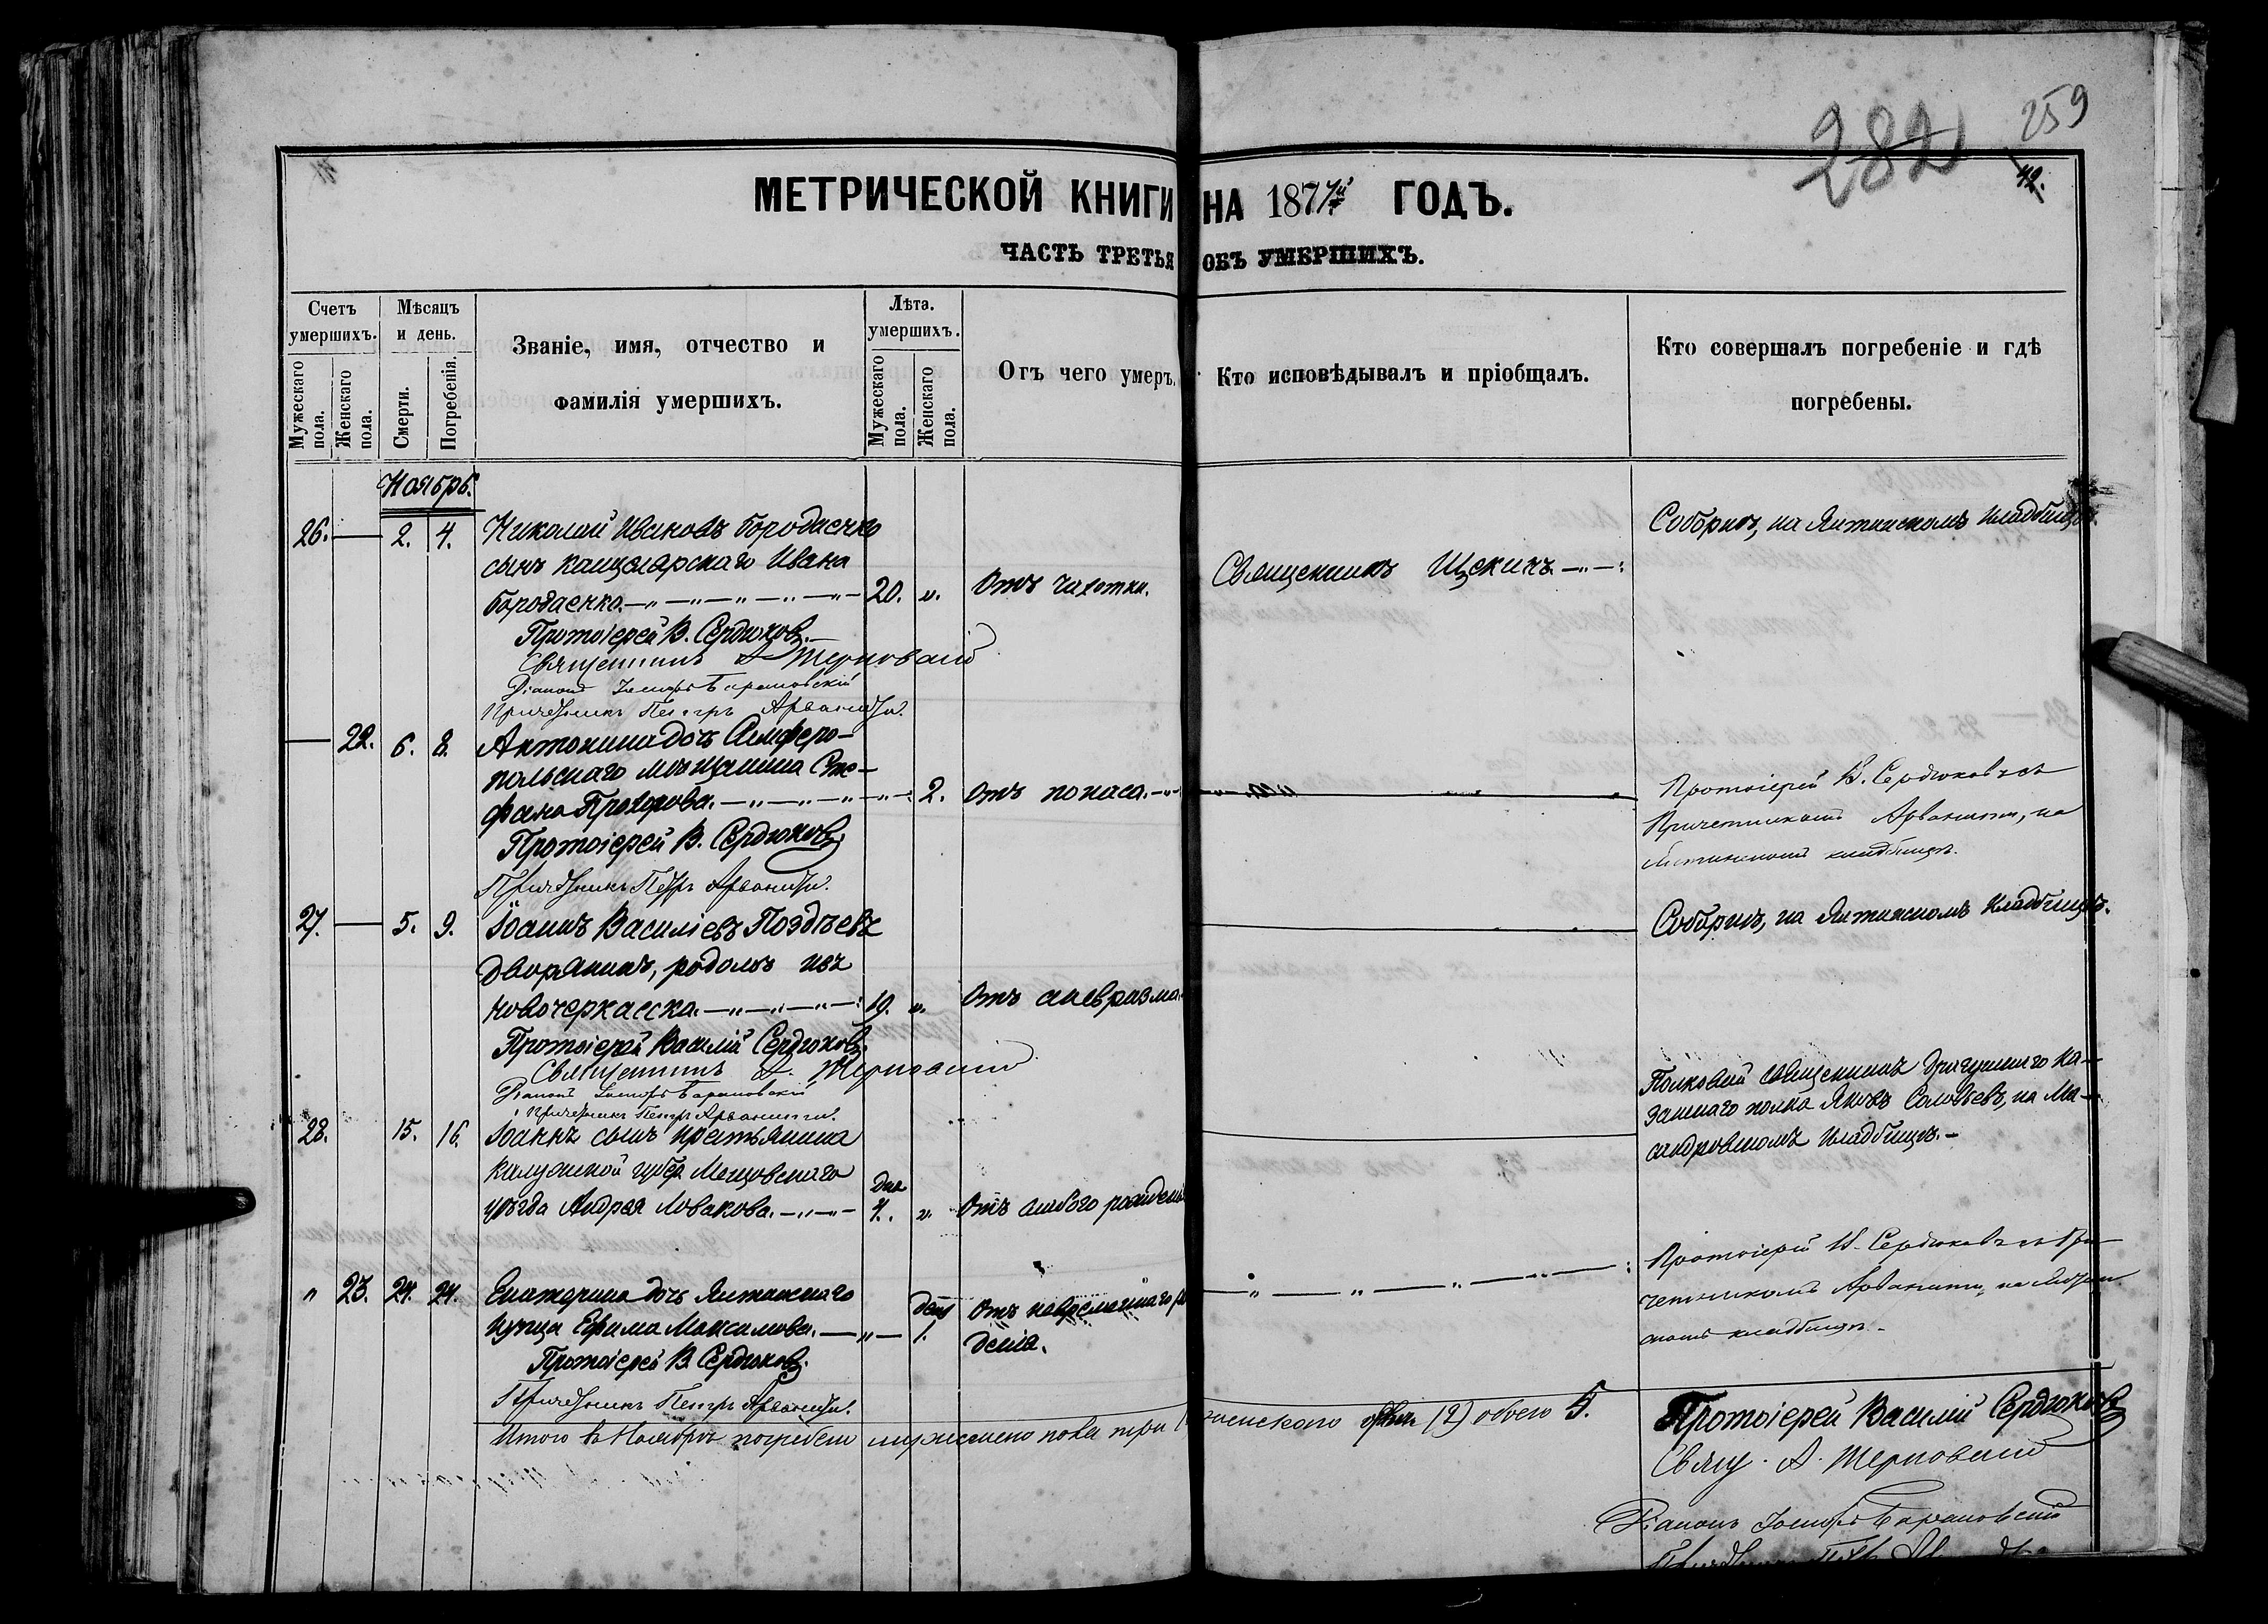 282
259
42.
МЕТРИЧЕСКОЙ КНИГИ НА 187 ГОДЪ.
ЧАСТЬ ТРЕТЬЯ ОБЪ УМЕРШИХЪ.
Счетъ умершихъ.
Мужескаго пола.
Женскаго пола.
Мѣсяцъ и день.
Смерти.
Погребенія.
Званіе, имя, отчество и
фамилія умершихъ.
Лѣта.
умершихъ.
Мужескаго пола.
Женскаго пола.
Отъ чего умеръ.
Кто исповѣдывалъ и пріобщалъ.
Кто совершалъ погребеніе и гдѣ
погребены.
Ноябрь.
26. — 2. 4. Николай Ивановъ Бородаенко
сынъ канцелярскаго Ивана
Бородаенко. 20. „ Отъ чахотки. Священникъ Щекинъ
Соборнѣ, на Ялтинскомъ кладбищѣ.
Протоіерей В. Сердюковъ.
Священникъ А Терновскій
Діаконъ Іосифъ Барановскій
Причетникъ Петръ Арванити.
— 22. 6. 8. Антонина дочь Симферо-
польскаго мѣщанина Сте-
фана Прохорова. 2. Отъ поноса.
Протоіерей В. Сердюковъ съ
Причетникомъ Арванити, на
Ялтинскомъ кладбищѣ.
Протоіерей В. Сердюковъ
Причетникъ Петръ Арванити.
27. — 5. 9. Іоаннъ Василіевъ Поздѣевъ
дворянинъ, родомъ изъ
Новочеркасска. 19. „ Отъ аневризма.
Соборнѣ, на Ялтинскомъ кладбищѣ.
Протоіерей Василій Сердюковъ
Священникъ А. Терновскій
Діаконъ Іосифъ Барановскій
Причетникъ Петръ Арванити.
28. 15. 16. Іоаннъ сынъ крестьянина
Калужской губер. Мещовскаго
уѣзда Андрея Новакова. дня 4. „ Отъ слабого рожденія
Полковой священникъ
полка Яковъ Соловьевъ, на Ма-
сандровскомъ кладбищѣ.
„ 23. 24. 24. Екатерина дочь Ялтинскаго
купца Ефима Максимова. день 1. Отъ невременнаго
денія.
Протоіерей В. Сердюковъ съ При-
четникомъ Арванити, на
кладбищѣ.
Протоіерей В. Сердюковъ.
Причетникъ Петръ Арванити.
Итого въ Ноябрѣ погребено мужескаго пола три женскаго (2) обоего 5.
Протоіерей Василій Сердюковъ
Свящ. А. Терновскій
Діаконъ Іосифъ Барановскій